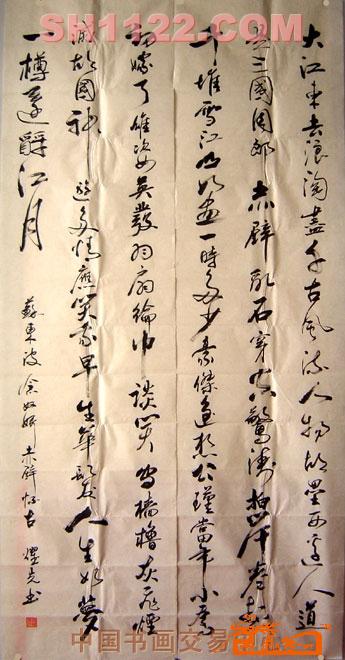 SH1122.COM
大江東去浪淘盡千古風流人物故壘西邊人道
是三國周郎赤壁乱石穿空驚濤拍岸卷起
千堆雪江山如畫一時多少豪傑遙想公瑾當年小喬
初嫁了雄姿英發羽扇綸巾談笑間檣櫓灰飛煙
滅故國神遊多情應笑我早生華髮人生如夢
一樽還酹江月
蘇東坡念奴嬌赤壁怀古
中国书画交易